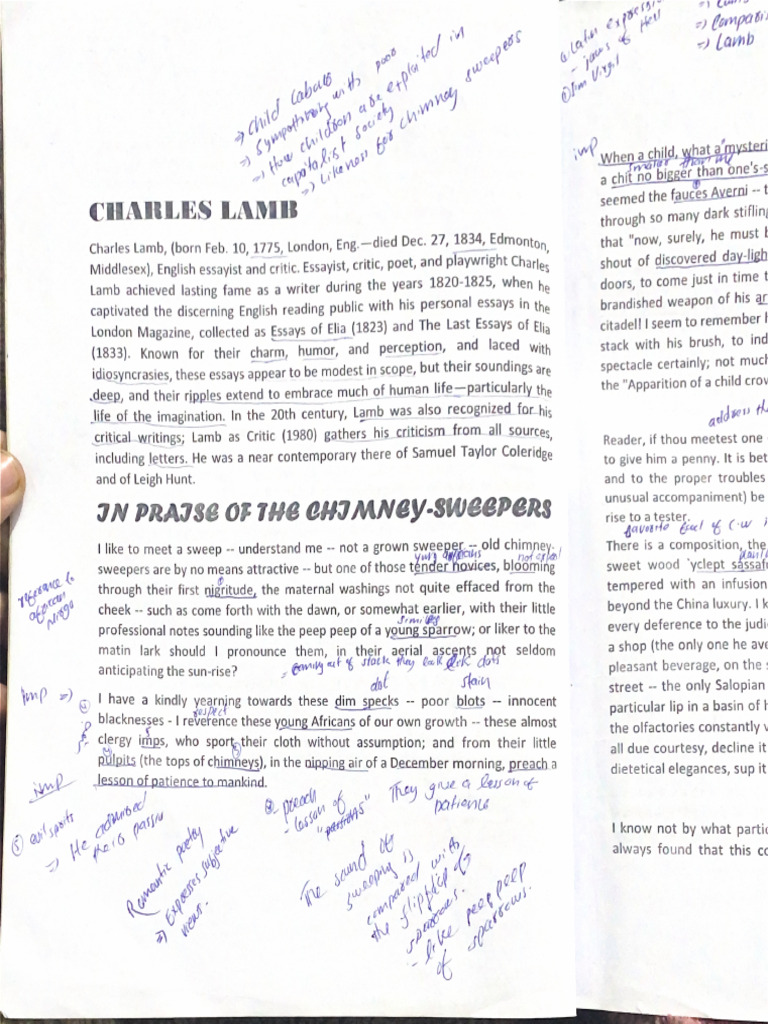 ⇒ Child Labour
⇒ Sympathizing with poor
⇒ How children are exploited in
capitalist society
⇒ Likeness for chimney sweepers
CHARLES LAMB
Charles Lamb, (born Feb. 10, 1775, London, Eng.—died Dec. 27, 1834, Edmonton,
Middlesex), English essayist and critic. Essayist, critic, poet, and playwright Charles
Lamb achieved lasting fame as a writer during the years 1820-1825, when he
captivated the discerning English reading public with his personal essays in the
London Magazine, collected as Essays of Elia (1823) and The Last Essays of Elia
(1833). Known for their charm, humor, and perception, and laced with
idiosyncrasies, these essays appear to be modest in scope, but their soundings are
deep, and their ripples extend to embrace much of human life—particularly the
life of the imagination. In the 20th century, Lamb was also recognized for his
critical writings; Lamb as Critic (1980) gathers his criticism from all sources,
including letters. He was a near contemporary there of Samuel Taylor Coleridge
and of Leigh Hunt.
IN PRAISE OF THE CHIMNEY-SWEEPERS
I like to meet a sweep -- understand me -- not a grown sweeper -- old chimney-
sweepers are by no means attractive -- but one of those tender novices, blooming
through their first nigritude, the maternal washings not quite effaced from the
cheek -- such as come forth with the dawn, or somewhat earlier, with their little
similes
professional notes sounding like the peep peep of a young sparrow; or liker to the
matin lark should I pronounce them, in their aerial ascents not seldom
anticipating the sun-rise?
dot stain
imp ⇒)
I have a kindly yearning towards these dim specks -- poor blots -- innocent
respect
blacknesses - I reverence these young Africans of our own growth -- these almost
clergy imps, who sport their cloth without assumption; and from their little
pulpits (the tops of chimneys), in the nipping air of a December morning, preach a
lesson of patience to mankind.
imp
⑤ evil spirits
② preach
- lesson of
"patients"
They give a lesson of
patience
Romantic poetry
⇒ Expresses subjective
The sound of
sweeping is
compared with
the
sparrows.
- like peep peep
of sparrows.
① Latin expression
- jaws of Hell
① Jim Virgil
⇒ Lamb
imp
When a child, what a mysteri
a chit no bigger than one's-s
seemed the fauces Averni -- t
through so many dark stifling
that "now, surely, he must b
shout of discovered day-ligh
doors, to come just in time t
brandished weapon of his ar
citadel! I seem to remember h
stack with his brush, to ind
spectacle certainly; not much
the "Apparition of a child crov
address th
Reader, if thou meetest one
to give him a penny. It is bet
and to the proper troubles
unusual accompaniment) be
rise to a tester.
There is a composition, the
sweet wood 'yclept sassaf
tempered with an infusion
beyond the China luxury. I k
every deference to the judi
a shop (the only one he ave
pleasant beverage, on the s
street -- the only Salopian
particular lip in a basin of h
the olfactories constantly v
all due courtesy, decline it
dietetical elegances, sup it
I know not by what partic
always found that this co